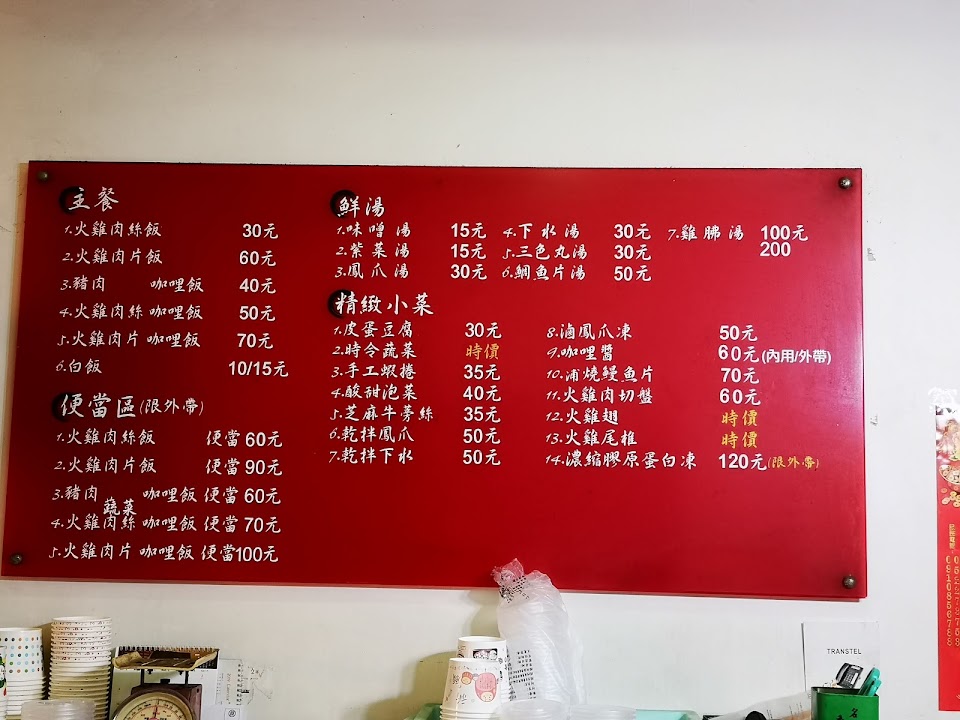 主餐
1.火雞肉絲飯 30元
2.火雞肉片飯 60元
3.豬肉 咖哩飯 40元
4.火雞肉絲 咖哩飯 50元
5.火雞肉片 咖哩飯 70元
6.白飯 10/15元
便當區(限外帶)
1.火雞肉絲飯 便當 60元
2.火雞肉片飯 便當 90元
3.豬肉 咖哩飯 便當 60元
蔬菜
4.火雞肉絲 咖哩飯 便當 70元
5.火雞肉片 咖哩飯 便當 100元
鮮湯
1.味噌湯 15元 4.下水湯 30元 7.雞胇湯 100元
2.紫菜湯 15元 5.三色丸湯 30元 200
3.鳳爪湯 30元 6.鯛魚片湯 50元
精緻小菜
1.皮蛋豆腐 30元
2.時令蔬菜 時價
3.手工蝦捲 35元
4.酸甜泡菜 40元
5.芝麻牛蒡絲 35元
6.乾拌鳳爪 50元
7.乾拌下水 50元
8.滷鳳爪凍 50元
9.咖哩醬 60元(內用/外帶)
10.浦燒鰻魚片 70元
11.火雞肉切盤 60元
12.火雞翅 時價
13.火雞尾椎 時價
14.濃縮膠原蛋白凍 120元(限外帶)
TRANSTEL